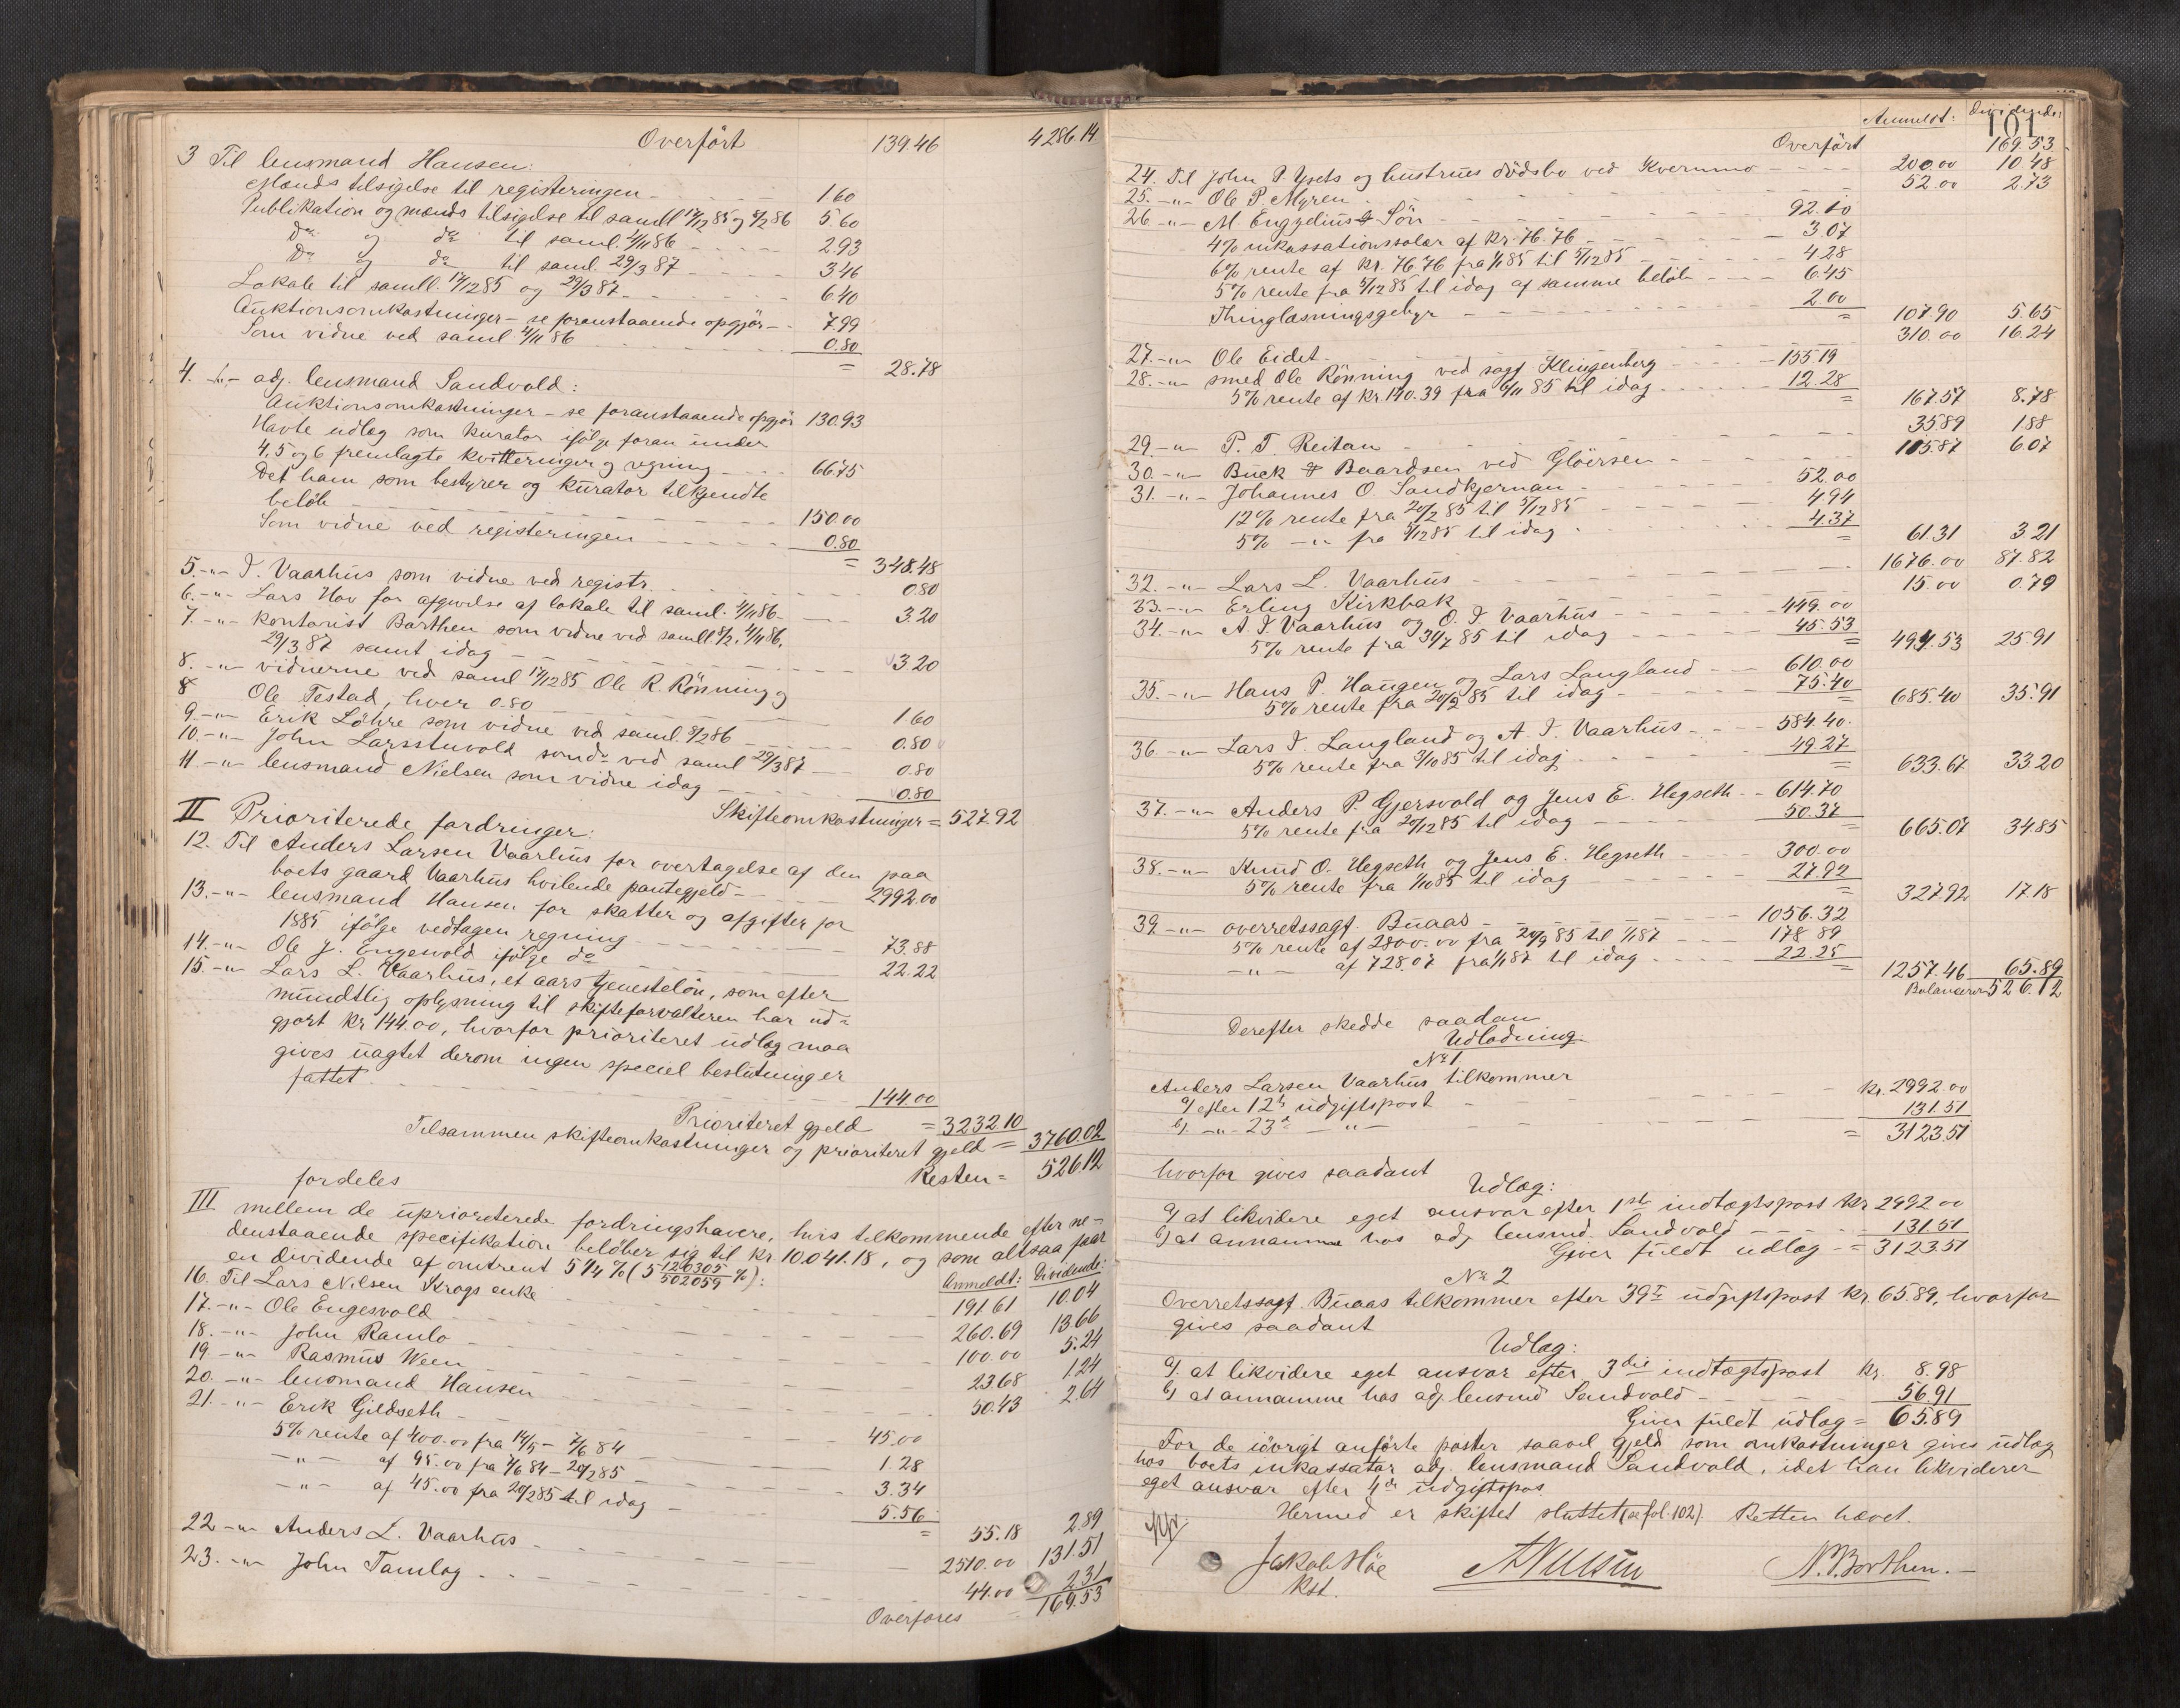 Overført 139.46 4286.14
3 Til lensmand Hansen:
Mands tilsigelse til registeringen - 1.60
Publikation og mands tilsigelse til samll 17/12 85 og 9/2 86 5.60
Do og do til saml. 4/11 86 - - - - 2.93
Do og do til saml. 29/3 87 - - - - 3.46
Lokale til samll. 17/12 85 og 29/3 87 - - - 6.40
Auktionsomkostninger - se foranstaaende opgjør - 7.99
Som vidne ved saml 4/11 86 0.80
= 28.78
4. -"- adj. lensmand Sandvold:
Auktionsomkostninger - se foranstaaende opgjør 130.93
Havte udlæg som kurator ifølge foran under
4, 5 og 6 fremlagte kvitteringer og regning - - - 66.75
Det ham som bestyrer og kurator tilkjendte
beløb - - - - 150.00
Som vidne ved registeringen - - - - 0.80
= 348.48
5. -"- I. Vaarhus som vidne ved registr. - - - 0.80
6. -"- Lars Hov for afgivelse af lokale til saml. 4/11 86 - - - 3.20
7. -"- kontorist Borthen som vidne ved samll 9/2, 4/11 86,
29/3 87 samt idag - - - - 3.20
8. -"- vidnerne ved saml 17/12 85 Ole R. Rønning og
8 Ole Testad, hver 0.80 - - - 1.60
9. -"- Erik Løhre som vidne ved saml. 9/2 86 - - - 0.80
10. -"- John Larsstuvold som do ved saml 29/3 87 - - 0.80
11. -"- lensmand Nielsen som vidne idag - - - 0.80
Skifteomkostninger = 527.92
II Prioriterede fordringer:
12. Til Anders Larsen Vaarhus for overtagelse af den paa
boets gaard Vaarhus hvilende pantegjeld - - 2992.00
13. -"- lensmand Hansen for skatter og afgifter for
1885 ifølge vedtagen regning - - - 73.88
14. -"- Ole J. Engesvold ifølge do - - - 22.22
15. -"- Lars L. Vaarhus, et aars tjenesteløn, som efter
mundtlig oplysning til skifteforvalteren har ud-
gjort kr 144.00, hvorfor prioriteret udlæg maa
gives uagtet derom ingen speciel beslutning er
fattet - - - - 144.00
Prioriteret gjeld = 3232.10
Tilsammen skifteomkostninger og prioriteret gjeld = 3760.02
Resten = 526.12
fordeles
III mellem de uprioriterede fordringshavere, hvis tilkommende efter ne-
denstaaende specifikation beløber sig til kr 10.041.18, og som altsaa faar
en dividende af omtrent 5 1/4 % (5 120305/502059 %):
Anmeldt: Dividende:
16. Til Lars Nilsen Krogs enke - - - 191.61 10.04
17. -"- Ole Engesvold - - - 260.69 13.66
18. -"- John Ramlo - - - 100.00 5.24
19. -"- Rasmus Ween - - - 23.68 1.24
20. -"- lensmand Hansen - - - 50.43 2.64
21. -"- Erik Gildseth - - - 45.00
5% rente af 400.00 fra 14/5 - 7/6 84 - - - 1.28
-"- af 95.00 fra 7/6 84 - 20/2 85 - - - 3.34
-"- af 45.00 fra 20/2 85 til idag - - - 5.56
= 55.18 2.89
22 -"- Anders L. Vaarhus - - - 2510.00 131.51
23. -"- John Tamlag - - - 44.00 2.31
Overføres 169.53
Anmeldt: Dividende:
101
Overført 169.53
24. Til John P. Ysets og hustrues dødsbo ved Kvernmo - - - 200.00 10.48
25. -"- Ole P. Myren - - - 52.00 2.73
26. -"- M Engzelius & Søn - - - 92.10
4% inkassationssalær af kr. 76.76 - - - 3.07
6% rente af kr. 76.76 fra 1/1 85 til 5/12 85 - - - 4.28
5% rente fra 5/12 85 til idag af samme beløb - - - 6.45
Thinglæsningsgebyr - - - 2.00
= 107.90 5.65
27. -"- Ole Eidet - - - 310.00 16.24
28. -"- smed Ole Rønning ved sagf Klingenberg - - - 155.19
5% rente af kr. 190.39 fra 6/11 85 til idag - - - 12.28
= 167.57 8.78
29. -"- P. T. Reitan - - - 35.89 1.88
30. -"- Buck & Baardsen ved Gløersen - - - 115.87 6.07
31. -"- Johannes O. Sandkjernan - - - 52.00
12% rente fra 20/2 85 til 5/12 85 - - - 4.94
5% -"- fra 5/12 85 til idag - - - 4.37
= 61.31 3.21
32. -"- Lars L. Vaarhus - - - 1676.00 87.82
33. -"- Erling Kirkbak - - - 15.00 0.79
34. -"- A. I. Vaarhus og O. I Vaarhus - - - 449.00
5% rente fra 30/7 85 til idag - - - 45.53
= 494.53 25.91
35. -"- Hans P. Haugen og Lars Langland - - - 610.00
5% rente fra 20/2 85 til idag - - - 75.40
= 685.40 35.91
36. -"- Lars I. Langland og A. I. Vaarhus - - - 584.40.
5% rente fra 9/10 85 til idag - - - 49.27
= 633.67 33.20
37. -"- Anders P. Gjersvold og Jens E. Hegseth - - 614.70
5% rente fra 20/12 85 til idag - - - 50.37
= 665.07 34.85
38. -"- Knud O. Hegseth og Jens E. Hegseth - - - 300.00
5% rente fra 1/10 85 til idag - - - 27.92
= 327.92 17.18
39. -"- overretssagf. Buaas - - - 1056.32
5% rente af 2800.00 fra 20/9 85 til 1/1 87 - - - 178.89
-"- af 728.07 fra 1/1 87 til idag - - - 22.25
= 1257.46 65.89
Balancerer 526.12
Derefter skedde saadan
Udlodning
No 1.
Anders Larsen Vaarhus tilkommer
a) efter 12te udgiftspost - - - kr. 2992.00
b) -"- 23de -"- - - - 131.51
= 3123.51
hvorfor gives saadant
Udlæg:
a) at likvidere eget ansvar efter 1ste indtægtspost kr 2992.00
b) at annamme hos adj lensmd. Sandvold - - - 131.51
Giver fuldt udlæg - = 3123.51
No 2
Overretssagf. Buaas tilkommer efter 39te udgiftspost kr. 65.89, hvorfor
gives saadant
Udlæg:
a). at likvidere eget ansvar efter 3die indtægtspost kr. 8.98
b) at annamme hos adj. lensmd Sandvold - - - 56.91
Giver fuldt udlæg = 65.89
For de iøvrigt anførte poster saavel gjeld som omkostninger gives udlæg
hos boets inkassator adj. lensmand Sandvold, idet han likviderer
eget ansvar efter 4de udgiftspos.
Hermed er skiftet sluttet (se fol. 102). Retten hævet.
Jakob Høe A Nielsen N. P. Borthen.
Kst.